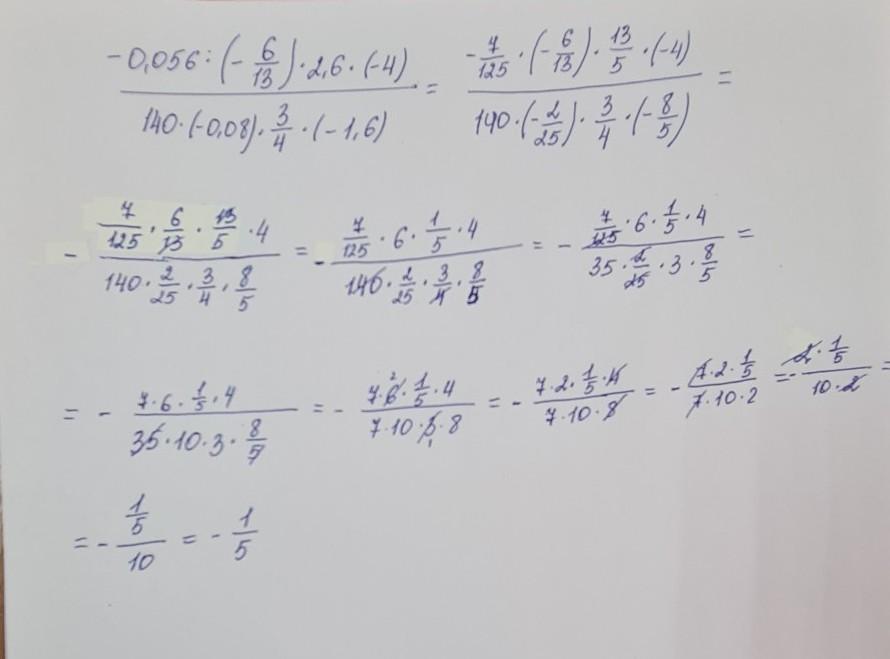 \frac{-0,056 : (-\frac{6}{13}) \cdot 2,6 \cdot (-4)}{140 \cdot (-0,08) \cdot \frac{3}{4} \cdot (-1,6)} = \frac{-\frac{7}{125} \cdot (-\frac{6}{13}) \cdot \frac{13}{5} \cdot (-4)}{140 \cdot (-\frac{2}{25}) \cdot \frac{3}{4} \cdot (-\frac{8}{5})} =
- \frac{\frac{7}{125} \cdot \frac{6}{13} \cdot \frac{13}{5} \cdot 4}{140 \cdot \frac{2}{25} \cdot \frac{3}{4} \cdot \frac{8}{5}} = - \frac{\frac{7}{125} \cdot 6 \cdot \frac{1}{5} \cdot 4}{140 \cdot \frac{2}{25} \cdot \frac{3}{4} \cdot \frac{8}{5}} = - \frac{\frac{7}{125} \cdot 6 \cdot \frac{1}{5} \cdot 4}{35 \cdot \frac{2}{25} \cdot 3 \cdot \frac{8}{5}} =
= - \frac{7 \cdot 6 \cdot \frac{1}{5} \cdot 4}{35 \cdot 10 \cdot 3 \cdot \frac{8}{5}} = - \frac{7 \cdot 6 \cdot \frac{1}{5} \cdot 4}{7 \cdot 10 \cdot 3 \cdot 8} = - \frac{7 \cdot 2 \cdot \frac{1}{5} \cdot 4}{7 \cdot 10 \cdot 8} = - \frac{7 \cdot 2 \cdot \frac{1}{5}}{7 \cdot 10 \cdot 2} = - \frac{2 \cdot \frac{1}{5}}{10 \cdot 2} =
= - \frac{\frac{1}{5}}{10} = - \frac{1}{5}